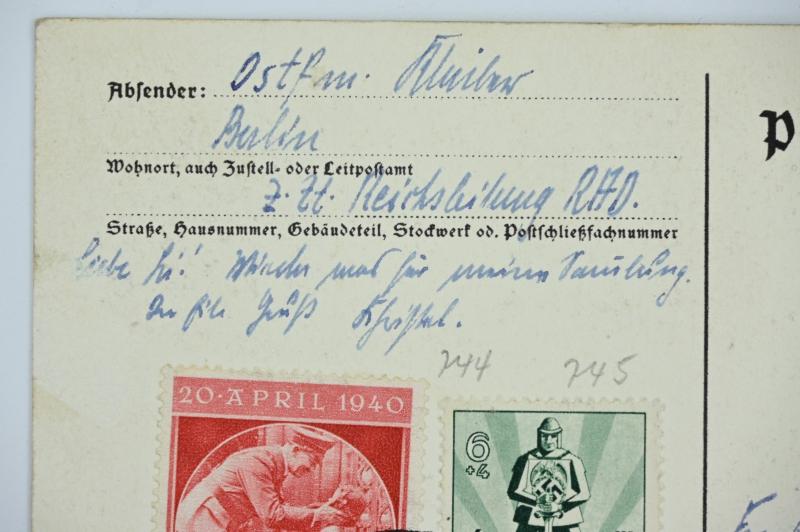 Absender: Ostfm. Kleiber
Berlin
Wohnort, auch Zustell- oder Leitpostamt
z. Zt. Reichsleitung RAD.
Straße, Hausnummer, Gebäudeteil, Stockwerk od. Postschließfachnummer
Liebe Wieder was für meine Samlung.
Gruß Christel.
744 745
20·APRIL 1940
6
+4
P